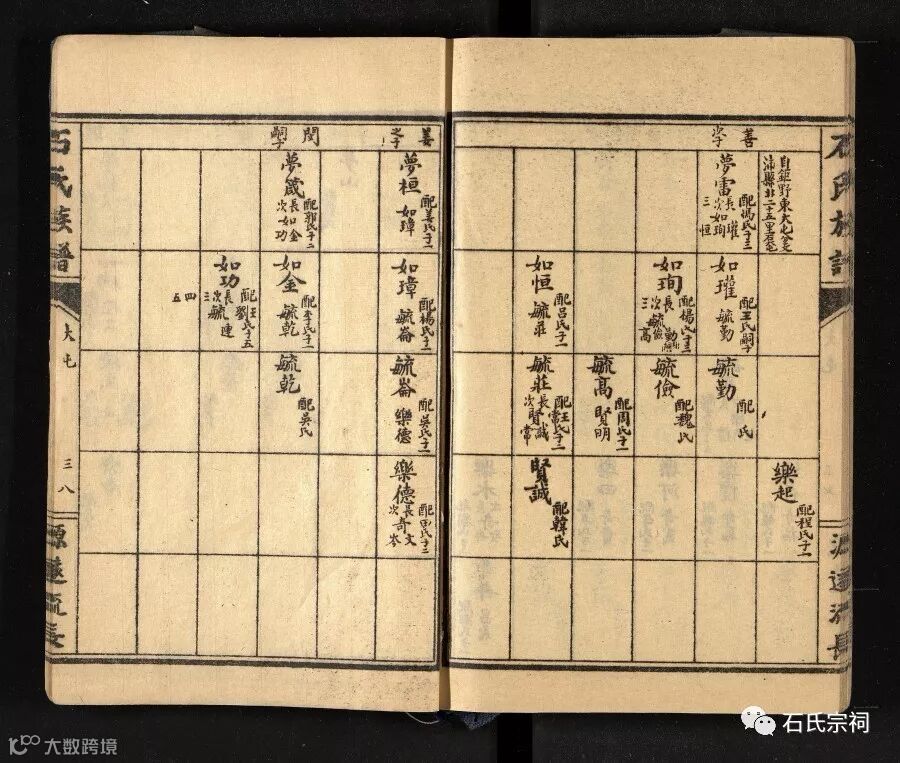 石氏族譜
源遠流長
善
自鉅野東大屯仝芝
夢雷
配馮氏子三
長瓘
次如珣
三恒
如瓘
毓勤
配王氏嗣子
如珣
配楊氏子三
次毓儉
三高
如恒
毓莊
配呂氏子一
毓勤
配氏
毓儉
配魏氏
毓高
賢明
配周氏子一
毓莊
配王氏子二
長賢誠
次常
樂起
配程氏子一
賢誠
配韓氏
姜之子
閔嗣子
夢桓
如璋
配姜氏子一
夢箴
配郭氏子二
長如金
次如功
如璋
毓崙
配楊氏子一
如金
毓乾
配李氏子一
如功
配王劉氏子五
長
次毓連
三
四
五
毓崙
樂德
配吳氏子一
毓乾
配吳氏
樂德
配田氏子二
長奇文
次岑
石氏族譜
大屯
三八
源遠流長
石氏宗祠
大数跨境